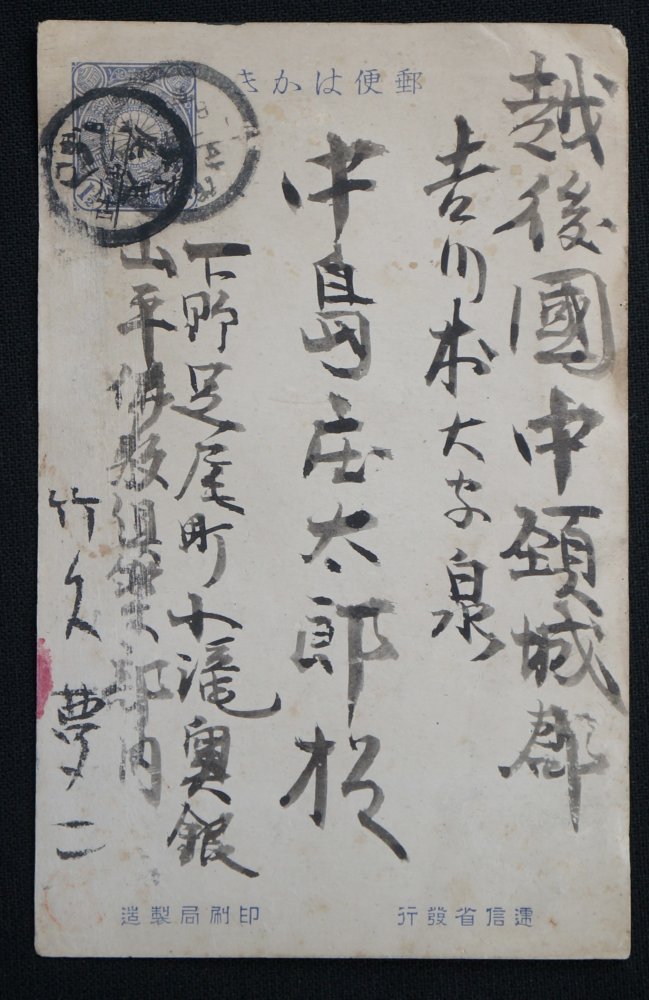 郵便はかき
越後國中頸城郡
吉川村大字泉
中島庄太郎様
下野足尾町小滝奥銀
山平倶楽部内
竹久夢二
逓信省發行
印刷局製造